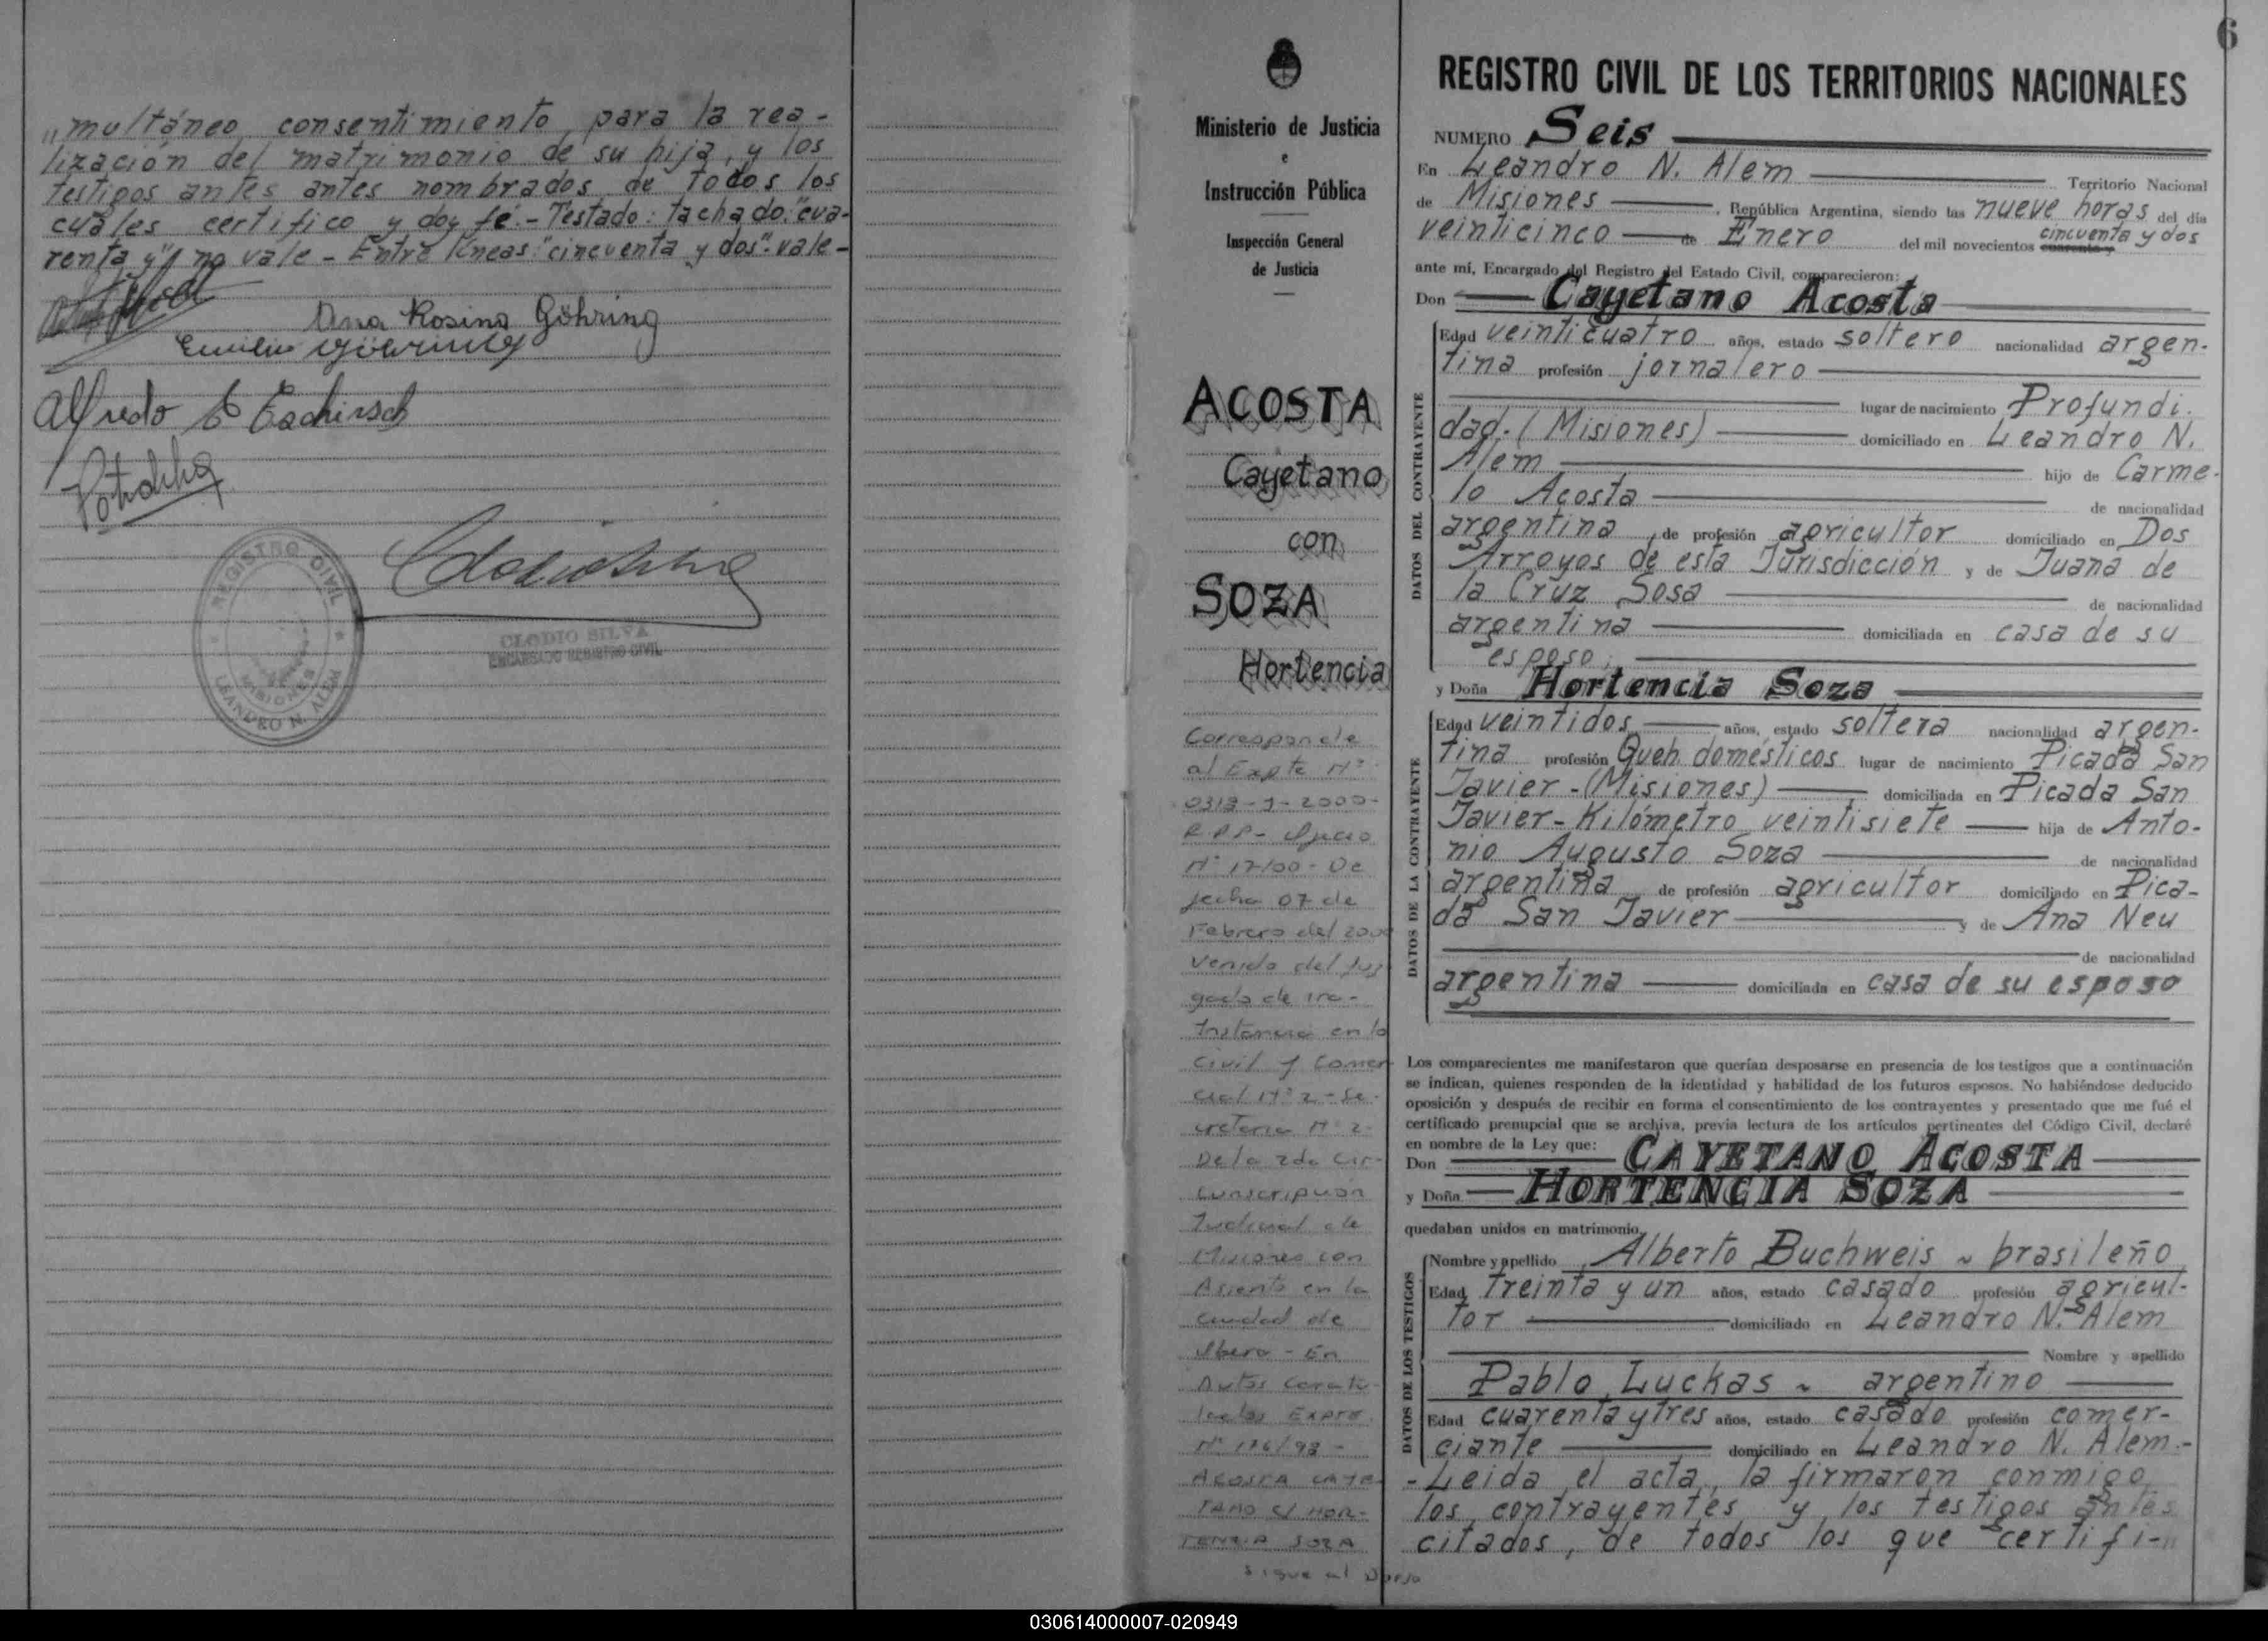 „multáneo consentimiento para la rea-
lización del matrimonio de su hija, y los
testigos antes antes nombrados de todos los
cuales certifico y doy fé.- Testado: tachado: "cua-
renta y" no vale - Entre líneas: "cincuenta y dos".- vale -
Ana Rosina Göhring
Emilio Göhring
Alfredo E
REGISTRO CIVIL
MISIONES
LEANDRO N. ALEM
CLODIO SILVA
ENCARGADO REGISTRO CIVIL
Ministerio de Justicia
e
Instrucción Pública
Inspección General
de Justicia
ACOSTA
Cayetano
con
SOZA
Hortencia
Corresponde
al Expte Nº
R.P.P.- Oficio
Nº 17/00 - De
fecha 07 de
Febrero del 2000
Venido del Juz
gado de 1ra -
Instancia en lo
Civil y Comer
cial Nº 2 - Se-
cretaria Nº 2-
De la 2da Cir-
cunscripción
Judicial de
Misiones con
Asiento en la
Ciudad de
Obera - En
Autos Caratu-
lados Expte.
Nº 176/98 -
ACOSTA CAYE-
TANO C/ HOR-
TENCIA SOZA
Sigue al Dorso
6
REGISTRO CIVIL DE LOS TERRITORIOS NACIONALES
NUMERO Seis
En Leandro N. Alem Territorio Nacional
de Misiones , República Argentina, siendo las nueve horas del día
veinticinco de Enero del mil novecientos cuarenta y cincuenta y dos
ante mí, Encargado del Registro del Estado Civil, comparecieron:
Don Cayetano Acosta
DATOS DEL CONTRAYENTE
Edad veinticuatro años, estado soltero nacionalidad argen-
tina profesión jornalero
lugar de nacimiento Profundi-
dad. (Misiones) domiciliado en Leandro N.
Alem hijo de Carme-
lo Acosta de nacionalidad
argentina , de profesión agricultor domiciliado en Dos
Arroyos de esta Jurisdicción y de Juana de
la Cruz Sosa de nacionalidad
argentina domiciliada en casa de su
esposo;
y Doña Hortencia Soza
DATOS DE LA CONTRAYENTE
Edad veintidos años, estado soltera nacionalidad argen-
tina profesión Queh. domésticos lugar de nacimiento Picada San
Javier - (Misiones) domiciliada en Picada San
Javier - Kilómetro veintisiete hija de Anto-
nio Augusto Soza de nacionalidad
argentina de profesión agricultor domiciliado en Pica-
da San Javier y de Ana Neu
de nacionalidad
argentina domiciliada en casa de su esposo
Los comparecientes me manifestaron que querían desposarse en presencia de los testigos que a continuación
se indican, quienes responden de la identidad y habilidad de los futuros esposos. No habiéndose deducido
oposición y después de recibir en forma el consentimiento de los contrayentes y presentado que me fué el
certificado prenupcial que se archiva, previa lectura de los artículos pertinentes del Código Civil, declaré
en nombre de la Ley que:
Don CAYETANO ACOSTA
y Doña HORTENCIA SOZA
quedaban unidos en matrimonio.
DATOS DE LOS TESTIGOS
Nombre y apellido Alberto Buchweis ~ brasileño
Edad treinta y un años, estado casado profesión agricul-
tor domiciliado en Leandro N. Alem
Nombre y apellido
Pablo Luckas ~ argentino
Edad cuarenta y tres años, estado casado profesión comer-
ciante domiciliado en Leandro N. Alem.-
- Leida el acta, la firmaron conmigo
los contrayentes y los testigos antes
citados, de todos los que certifi-„
030614000007-020949